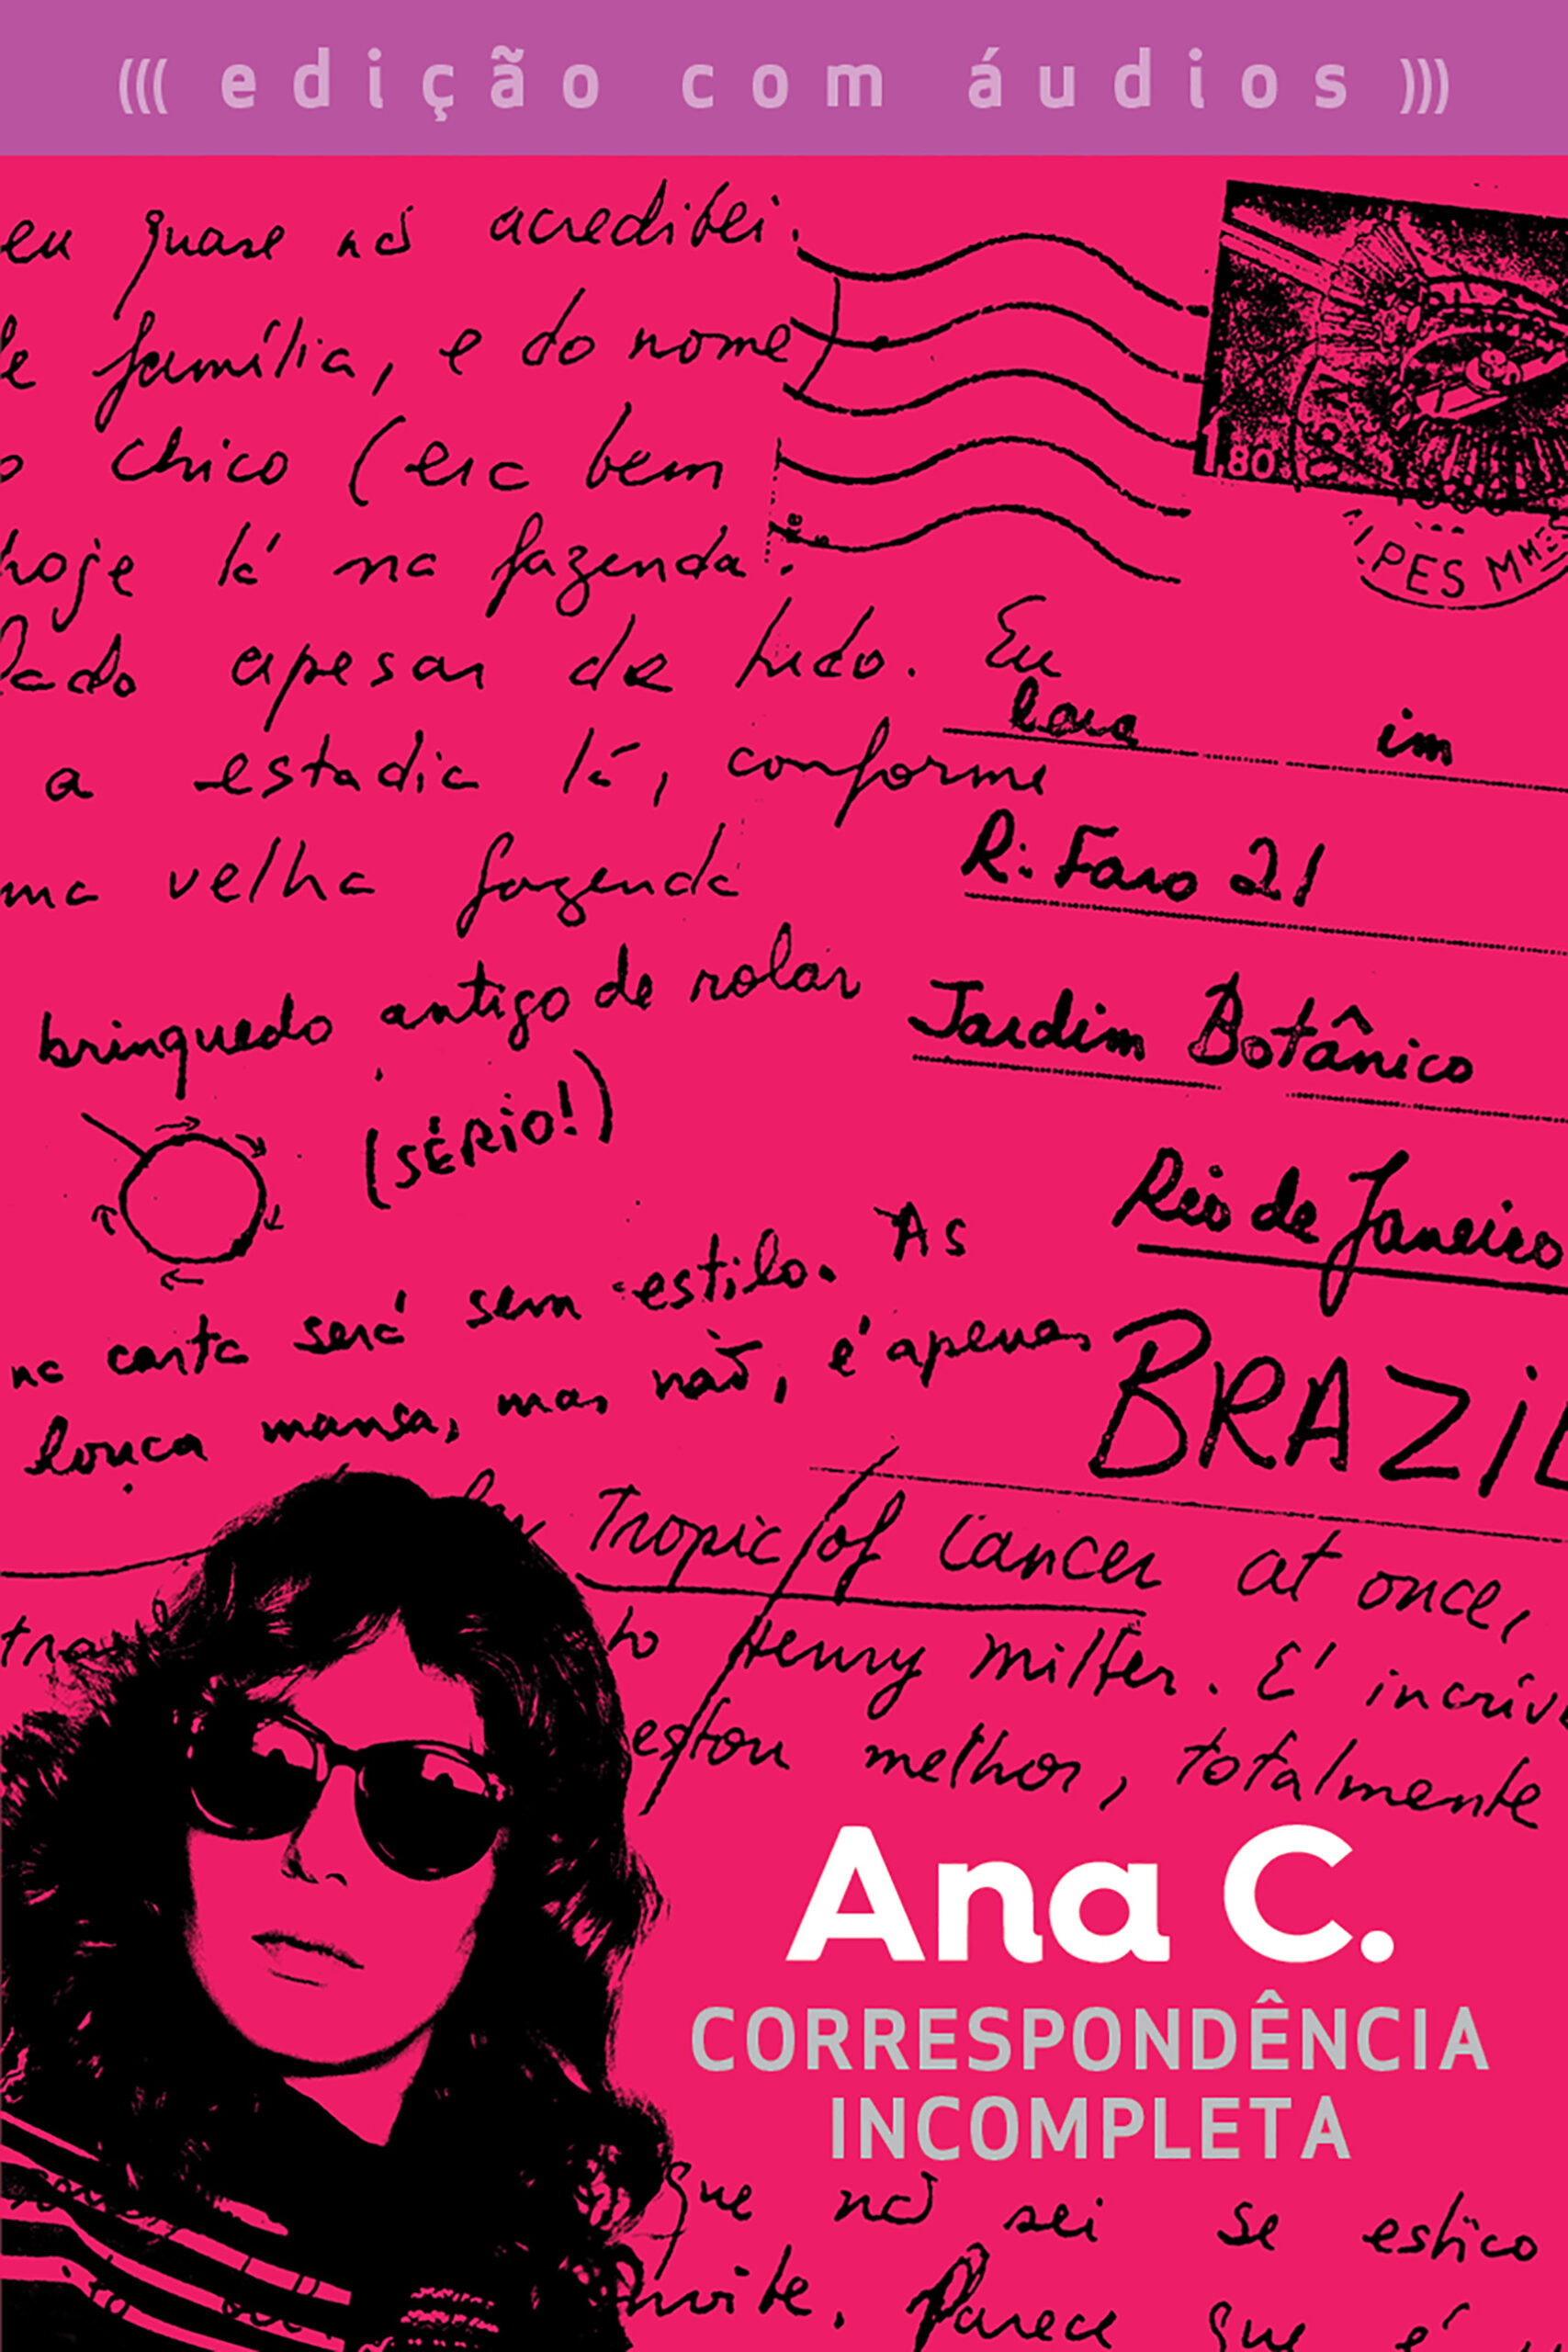 ((( edição com áudios )))
eu quase nã acreditei.
família, e do nome
chico (era bem
hoje lá na fazenda.
lado apesar de tudo. Eu
a estadia lá, conforme
ma velha fazenda
brinquedo antigo de rolar
(SÉRIO!)
na carta será sem estilo. As
louça mansa, mas não, é apenas
1,80
im
R. Faro 21
Jardim Botânico
Rio de Janeiro
BRAZIL
Tropic of Cancer at once,
to Henry Miller. É incríve
estou melhor, totalmente
Ana C.
CORRESPONDÊNCIA
INCOMPLETA
que nã sei se estico
noite. Parece que é